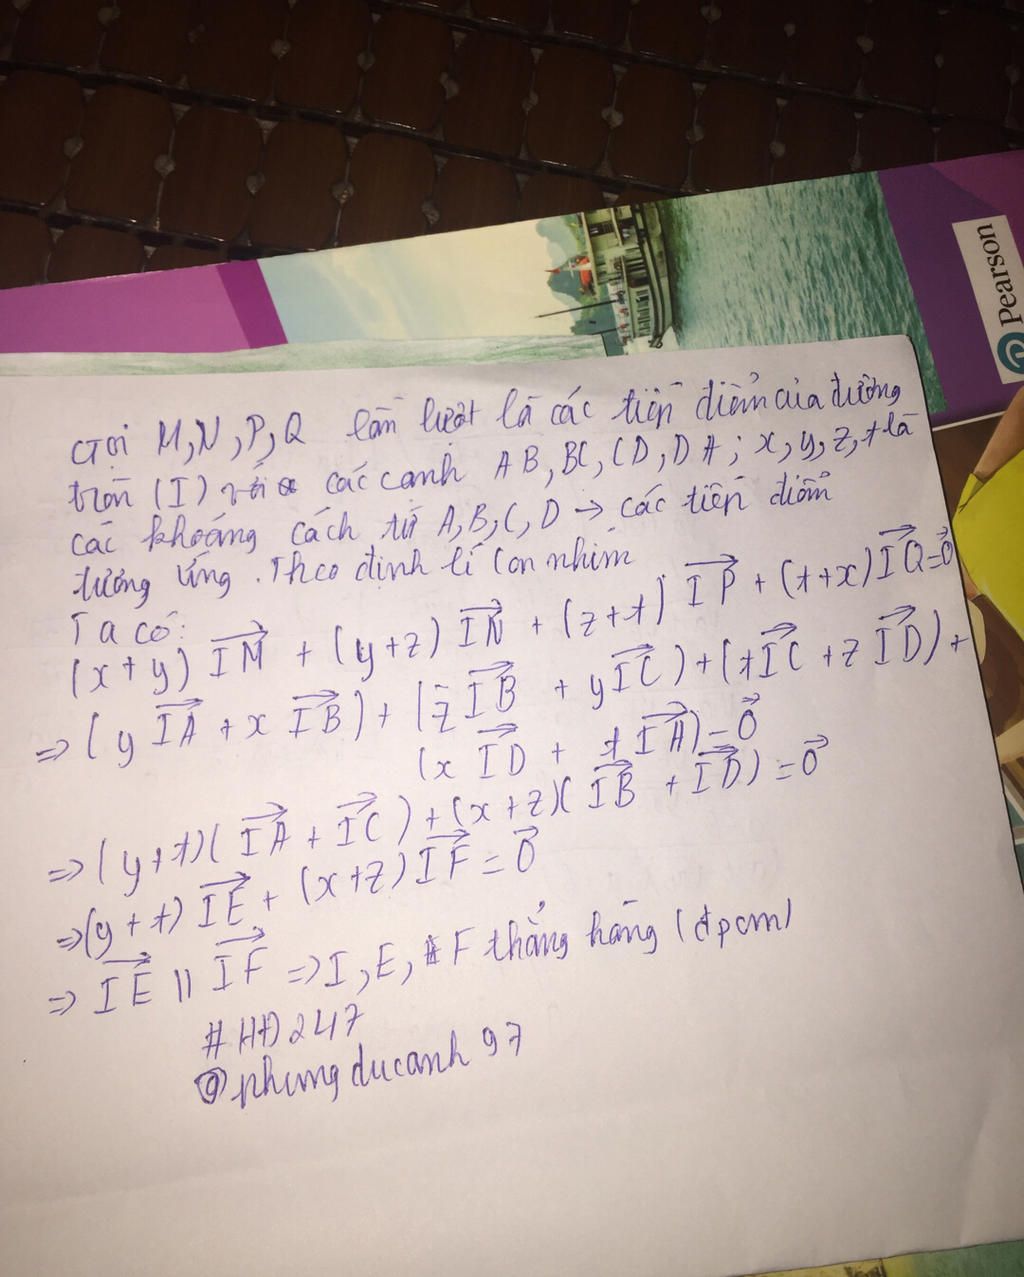 Pearson
Gọi M,N,P,Q lần lượt là các tiếp điểm của đường
tròn (I) với các cạnh AB, BC, CD, DA; x, y, z, t là
các khoảng cách từ A,B,C,D → các tiếp điểm
tương ứng. Theo định lí con nhím
Ta có:
(x+y) \overrightarrow{IM} + (y+z) \overrightarrow{IN} + (z+t) \overrightarrow{IP} + (t+x) \overrightarrow{IQ} = \vec{0}
⇒ (y \overrightarrow{IA} + x \overrightarrow{IB}) + (z \overrightarrow{IB} + y \overrightarrow{IC}) + (t \overrightarrow{IC} + z \overrightarrow{ID}) +
(x \overrightarrow{ID} + t \overrightarrow{IA}) = \vec{0}
⇒ (y+t)(\overrightarrow{IA} + \overrightarrow{IC}) + (x+z)(\overrightarrow{IB} + \overrightarrow{ID}) = \vec{0}
⇒ (y+t) \overrightarrow{IE} + (x+z) \overrightarrow{IF} = \vec{0}
⇒ \overrightarrow{IE} || \overrightarrow{IF} ⇒ I, E, F thẳng hàng (đpcm)
#HĐ247
@phungducanh97